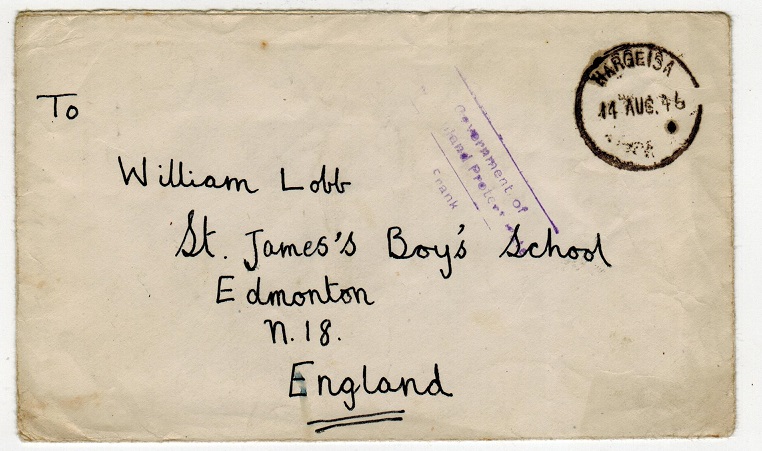 HARGEISA
14 AUG. 46
To
Government of
Frank
William Lobb
St. James's Boy's School
Edmonton
N.18.
England